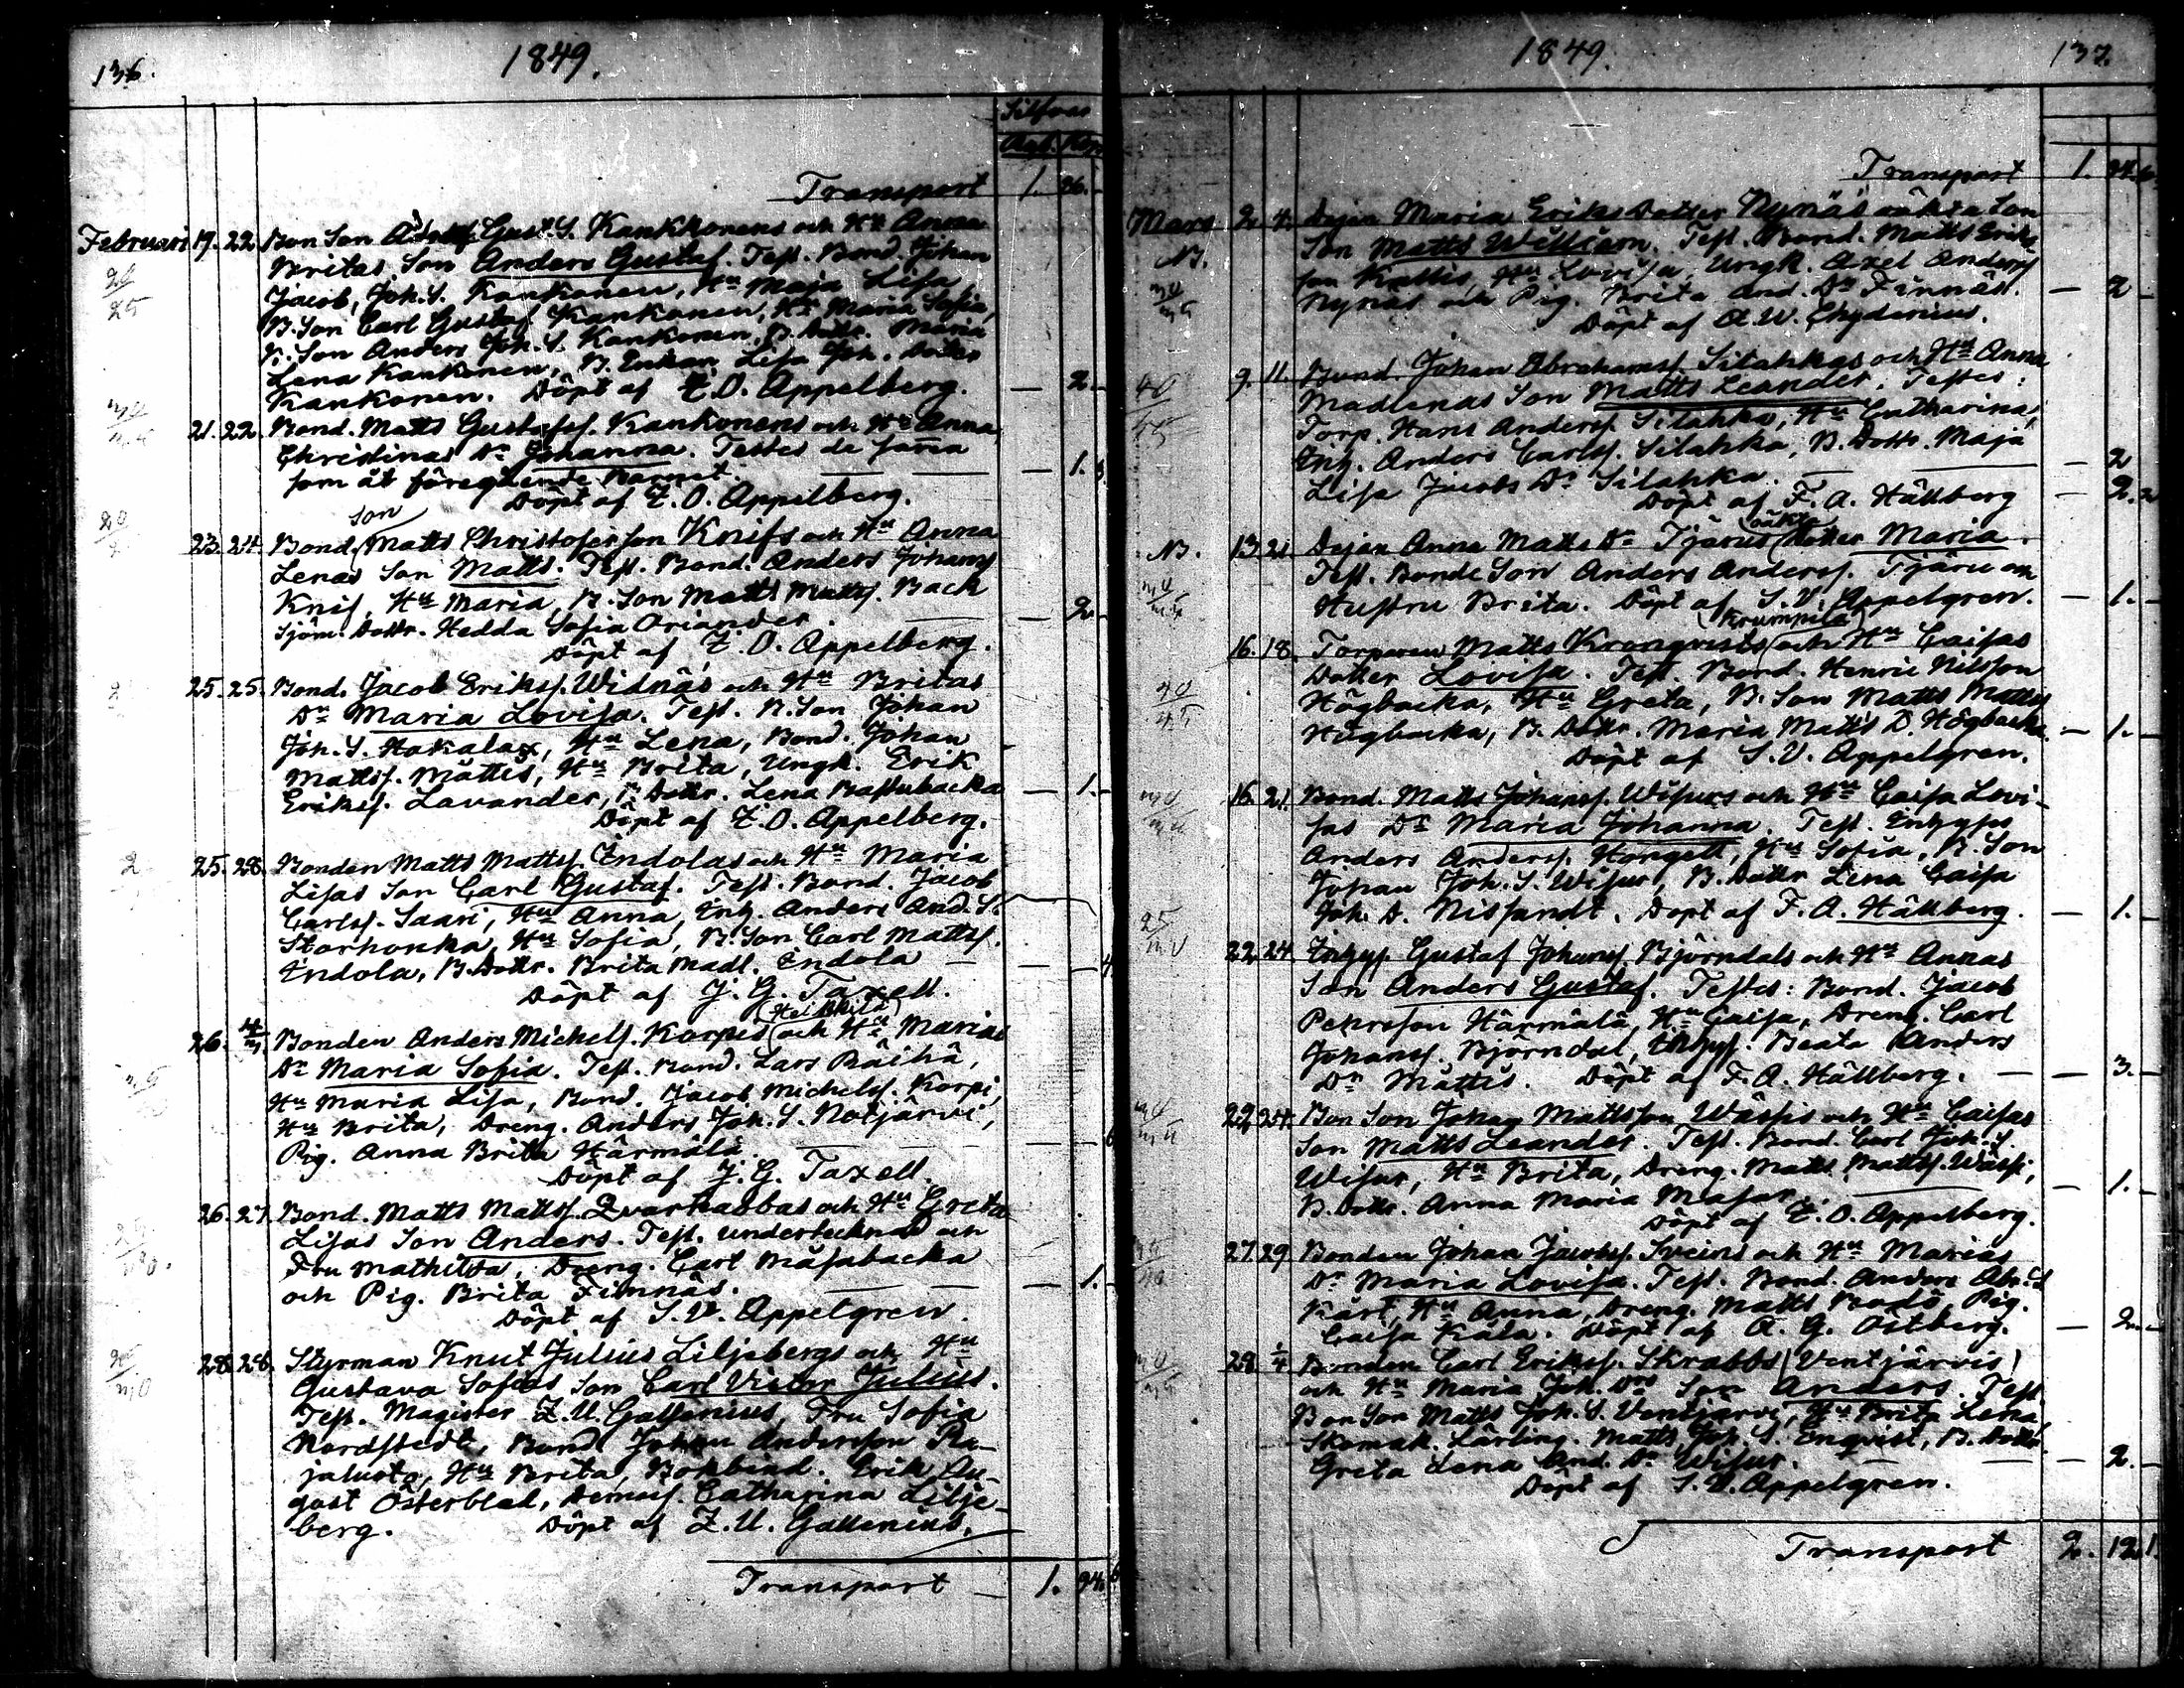 136.
1849.
Silfver
Rub. Kop.
Transport 1. 86.
Februari 19. 22. Bon Son Adolf Gust. S. Kankkonens och Hu Anna
Britas Son Anders Gustaf. Test. Bond. Johan
Jacob, Joh. S. Kankonen, Hu Maja Lisa,
B. Son Carl Gustaf Kankonen, Hu Maria Sofia,
B. Son Anders Joh. S. Kankonen, B. Dottr. Maria
Lena Kankonen, B. Enkan Lisa Joh. Dotter
Kankonen. Döpt af Z. O. Appelberg. — 2. —
21. 22. Bond. Matts Gustafss. Kankonens och Hu Anna
Christinas Dr Johanna. Testes de samma
som åt föregående Barnet. — 1.
Döpt af Z. O. Appelberg.
son
23. 24. Bond. Matts Christoferson Knifs och Hu Anna
Lenas Son Matts. Test. Bond. Anders Johanss
Knif, Hu Maria, B. Son Matts Mattss. Back
Sjöm. Dottr. Hedda Sofia Oriander. — 2. —
Döpt af Z. O. Appelberg.
25. 25. Bond. Jacob Erikss. Widnäs och Hu Britas
Dr Maria Lovisa. Test. B. Son Johan
Joh. S. Hakalax, Hu Lena, Bond. Johan
Mattss. Mattis, Hu Brita, Ungk. Erik
Erikss. Lavander, B. Dottr. Lena Bastubacka — 1. —
Döpt af Z. O. Appelberg.
25. 28. Bonden Matts Mattss. Indolas och Hu Maria
Lisas Son Carl Gustaf. Test. Bond. Jacob
Carlss. Saari, Hu Anna, Inh. Anders And. S.
Storhonka, Hu Sofia, B. Son Carl Mattss.
Indola, B. Dottr. Brita Madl. Indola —
Döpt af J. G. Taxell.
(Heikkilä)
26. 4/3 Bonden Anders Michelss. Korpis och Hu Marias
Dr Maria Sofia. Test. Bond. Lars Räihä,
Hu Maria Lisa, Bond. Jacob Michelss. Korpi,
Hu Brita, Dreng. Anders Joh. S. Notjärvi,
Pig. Anna Brita Härmälä.
Döpt af J. G. Taxell.
26. 27. Bond. Matts Mattss. Qvarnabbas och Hu Greta
Lisas Son Anders. Test. undertecknad och
Fru Mathilda, Dreng. Carl Måsabacka
och Pig. Brita Finnäs. — 1. —
Döpt af S. V. Appelgren.
28. 28. Styrman Knut Julius Liljebergs och Hu
Gustava Sofias Son Carl Victor Julius.
Test. Magister Z. U. Gallenius, Fru Sofia
Nordstedt, Bond Johan Andersson Ra-
jalusto, Hu Brita, Bokbind. Erik Au-
gust Österblad, Demois. Catharina Lilje-
berg. Döpt af Z. U. Gallenius.
Transport 1. 94. 6
1849.
137.
Transport 1. 94. 6.
Mars 2. 4. Dejan Maria Eriks Dotter Nynäs oäkta Son
NB. Son Matts William. Test. Bond. Matts Eriks
son Knuttis, Hu Lovisa, Ungk. Axel Anderss
Nynäs och Pig. Brita And. Dr Finnäs. — 2 —
Döpt af A. W. Chydenius.
9. 11. Bond. Johan Abrahamss. Silahkas och Hu Anna
Madlenas Son Matts Leander. Testes:
Torp. Hans Anderss. Silahka, Hu Catharina,
Inh. Anders Carlss. Silahka, B. Dottr. Maja
Lisa Jacobs Dr Silahka. — 2
Döpt af F. A. Hällberg — 2. 2
oäkta
NB. 13 21. Dejan Anna Matts Dr Tjärus Dotter Maria.
Test. Bonde Son Anders Anderss. Tjäru och
Hustru Brita. Döpt af S. V. Appelgren. — 1. —
(Krumpila)
16. 18. Torparen Matts Kronqvists och Hu Caisas
Dotter Lovisa. Test. Bond. Henric Nilsson
Högbacka, Hu Greta, B. Son Matts Mattss
Högbacka, B. Dottr. Maria Matts D. Högbacka. — 1. —
Döpt af S. V. Appelgren.
16. 21. Bond. Matts Johanss. Wisurs och Hu Caisa Lovi-
sas Dr Maria Johanna. Test. Inhyss
Anders Anderss. Hongell, Hu Sofia, B. Son
Johan Joh. S. Wisur, B. Dottr Lena Caisa
Joh. D. Nissandt. Döpt af F. A. Hällberg. — 1. —
22. 24. Inhys. Gustaf Johanss. Björndals och Hu Annas
Son Anders Gustaf. Testes: Bond. Jacob
Pehrsson Härmälä, Hu Caisa, Dreng. Carl
Johanss. Björndal, Inhys. Beata Anders
Dr Mattis. Döpt af F. A. Hällberg. — 3. —
22 24. Bon Son Johan Mattsson Wässis och Hu Caisas
Son Matts Leander. Test. Bond. Carl Joh. S.
Wisur, Hu Brita, Dreng. Matts Mattss. Wässi,
B. Dottr. Anna Maria Masar. — 1. —
Döpt af Z. O. Appelberg.
27. 29 Bonden Johan Jacobss. Sveins och Hu Marias
Dr Maria Lovisa. Test. Bond. Anders Abr. S
Kärt, Hu Anna, Dreng. Matts Bodö, Pig.
Caisa Kala. Döpt af A. G. Östberg. — 2. —
29. 1/4 Bonden Carl Erikss. Skrabbs (Ventjärvis)
och Hu Maria Joh. Drs Son Anders. Test
Bon Son Matts Joh. S. Ventjärvi, Hu Brita Lena,
Skomak. Lärling. Matts Joh. S. Enqvist, B. Dottr
Greta Lena And. Dr Wisur. — 2. —
Döpt af S. V. Appelgren.
Transport 2. 12. 1.